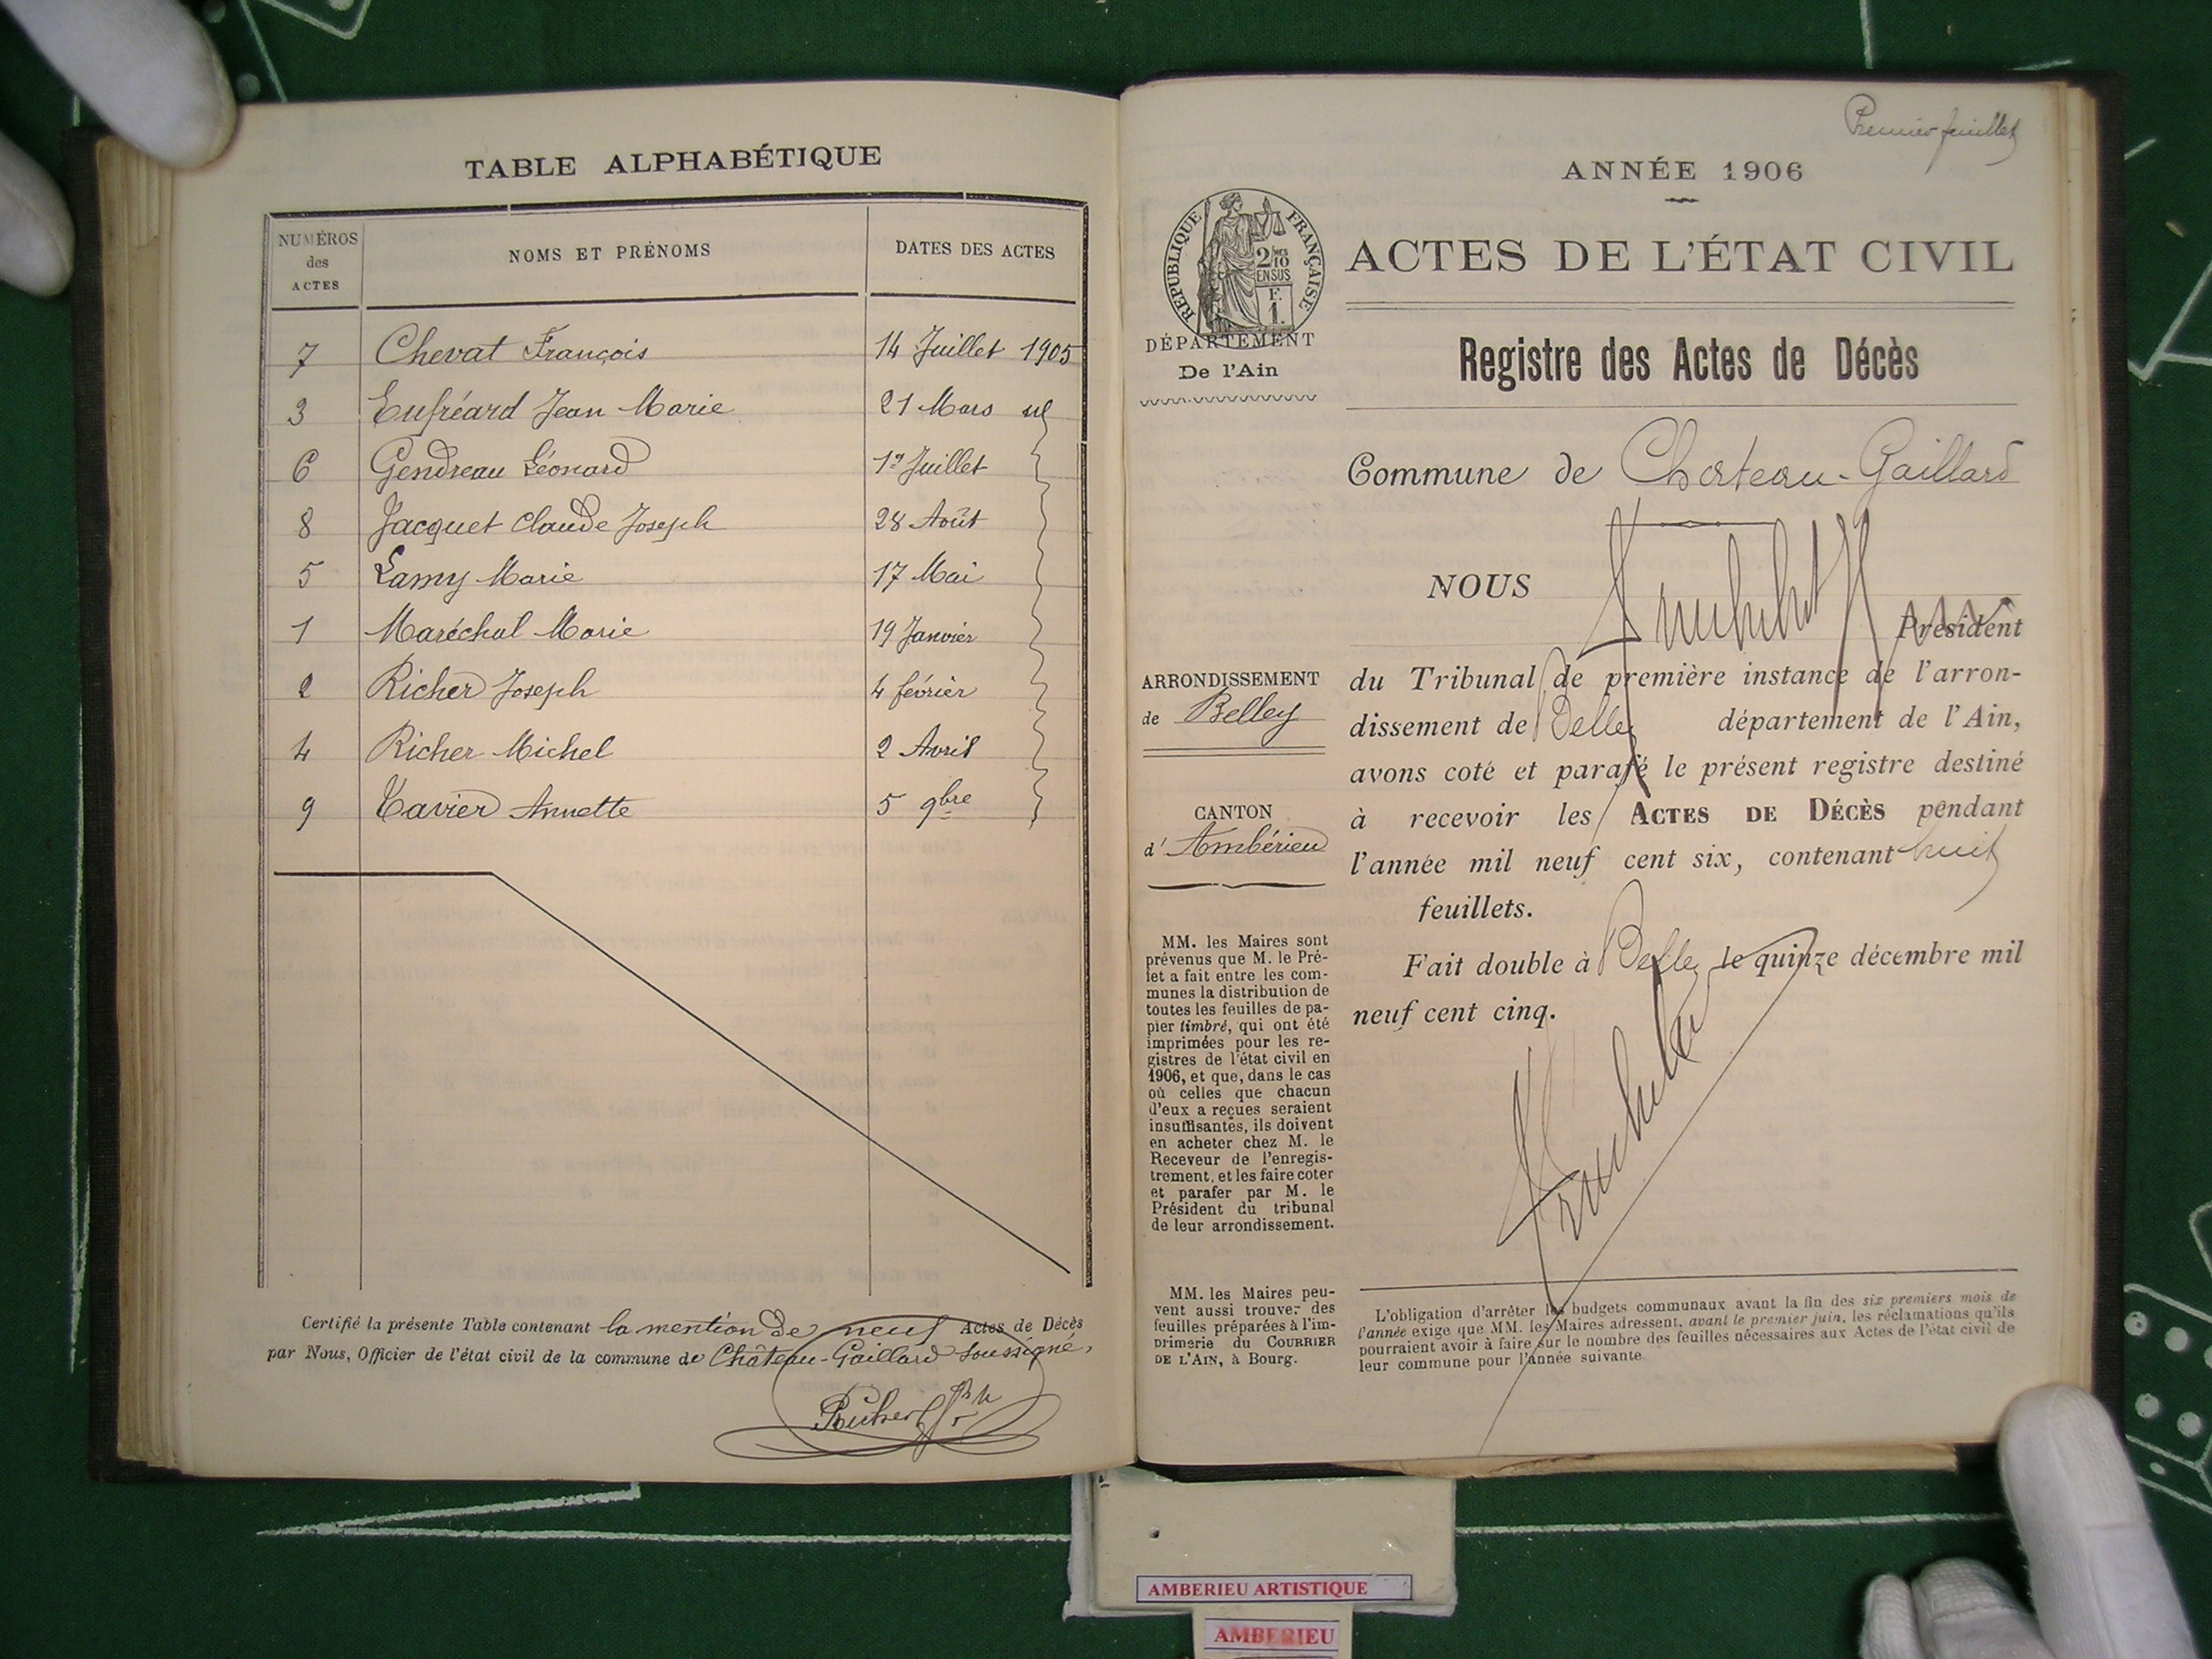 TABLE ALPHABÉTIQUE
NUMÉROS des ACTES NOMS ET PRÉNOMS DATES DES ACTES
7 Chevat François 14 Juillet 1905
3 Eufréard Jean Marie 21 Mars
6 Gendreau Léonard 1er Juillet
8 Jacquet Claude Joseph 28 Août
5 Lamy Marie 17 Mai
1 Maréchal Marie 19 Janvier
2 Richer Joseph 4 février
4 Richer Michel 2 Avril
9 Tavier Annette 5 9bre
Certifié la présente Table contenant la mention de neuf Actes de Décès
par Nous, Officier de l'état civil de la commune de Château-Gaillard soussigné,
Premier feuillet
ANNÉE 1906
RÉPUBLIQUE FRANÇAISE
2/10
EN SUS
F.
1.
ACTES DE L'ÉTAT CIVIL
DÉPARTEMENT
De l'Ain
Registre des Actes de Décès
Commune de Château-Gaillard
NOUS
Président
ARRONDISSEMENT
de Belley
CANTON
d'Ambérieu
du Tribunal de première instance de l'arron-
dissement de Belley département de l'Ain,
avons coté et parafé le présent registre destiné
à recevoir les ACTES DE DÉCÈS pendant
l'année mil neuf cent six, contenant huit
feuillets.
Fait double à Belley le quinze décembre mil
neuf cent cinq.
MM. les Maires sont
prévenus que M. le Pré-
fet a fait entre les com-
munes la distribution de
toutes les feuilles de pa-
pier timbré, qui ont été
imprimées pour les re-
gistres de l'état civil en
1906, et que, dans le cas
où celles que chacun
d'eux a reçues seraient
insuffisantes, ils doivent
en acheter chez M. le
Receveur de l'enregis-
trement, et les faire coter
et parafer par M. le
Président du tribunal
de leur arrondissement.
MM. les Maires peu-
vent aussi trouver des
feuilles préparées à l'im-
primerie du COURRIER
DE L'AIN, à Bourg.
L'obligation d'arrêter les budgets communaux avant la fin des six premiers mois de
l'année exige que MM. les Maires adressent, avant le premier juin, les réclamations qu'ils
pourraient avoir à faire sur le nombre des feuilles nécessaires aux Actes de l'état civil de
leur commune pour l'année suivante.
AMBERIEU ARTISTIQUE
AMBERIEU